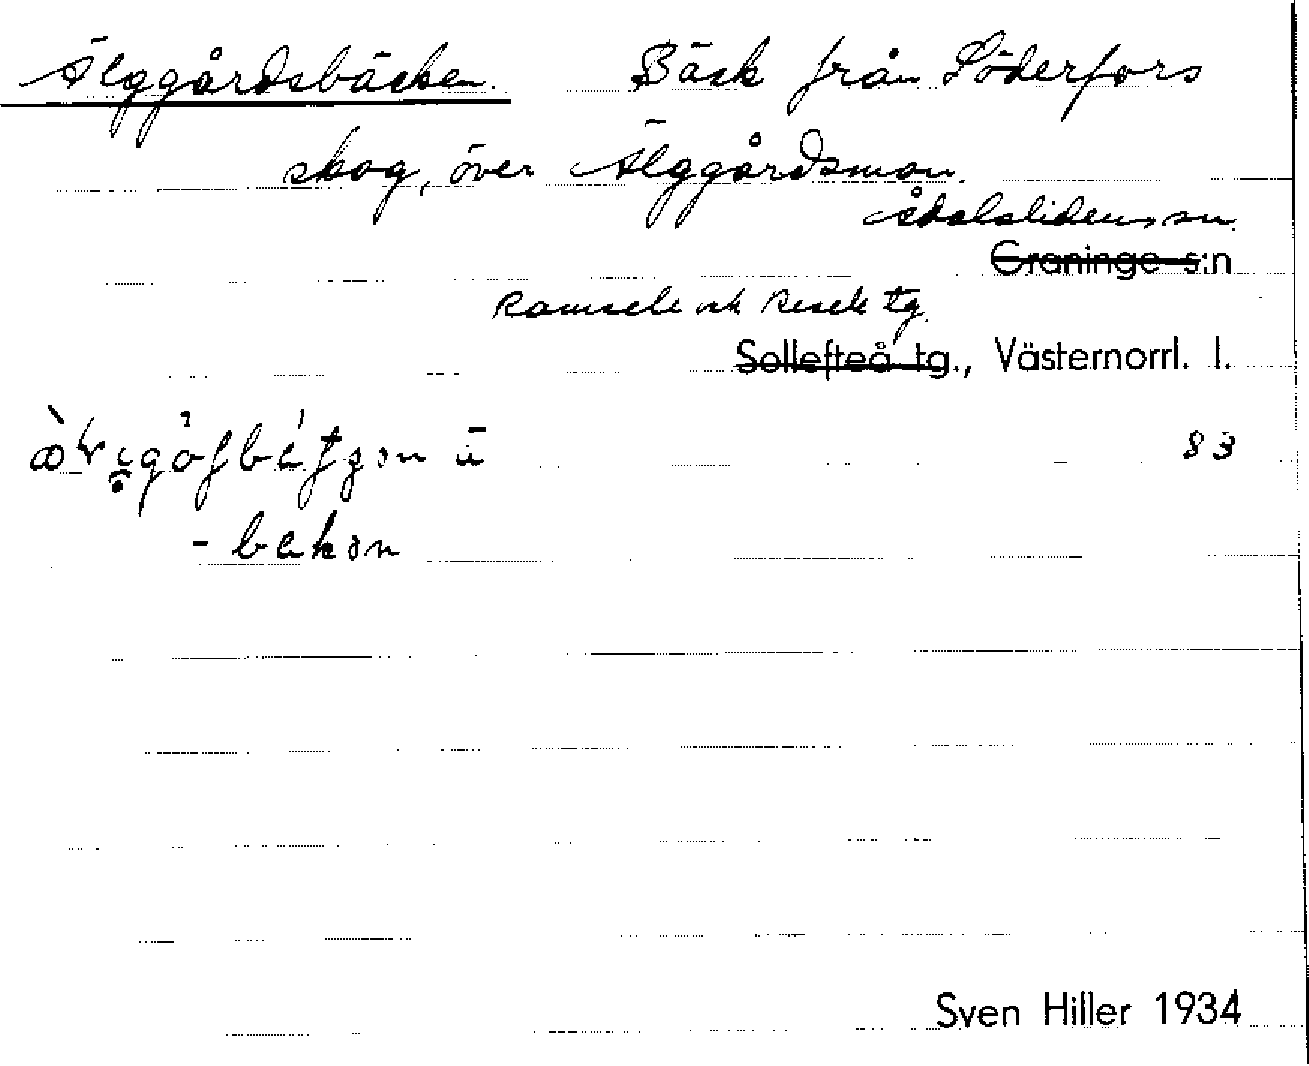 Älggårdsbäcken. Bäck från Söderfors
skog, över Älggårdsmon.
Ådalslidens sn.
Graninge s:n
Ramsele och Resele tg.
Sollefteå tg., Västernorrl. l.
83
- bekən
Sven Hiller 1934